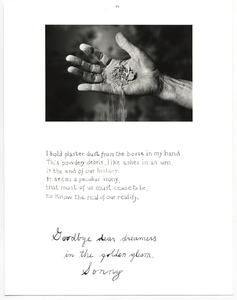 I hold plaster dust from the house in my hand.
This powdery debris, like ashes in an urn,
is the end of our history.
It seems a peculiar irony,
that most of us must cease to be,
to know the real of our reality.
Goodbye dear dreamers
in the golden gleam.
Sonny